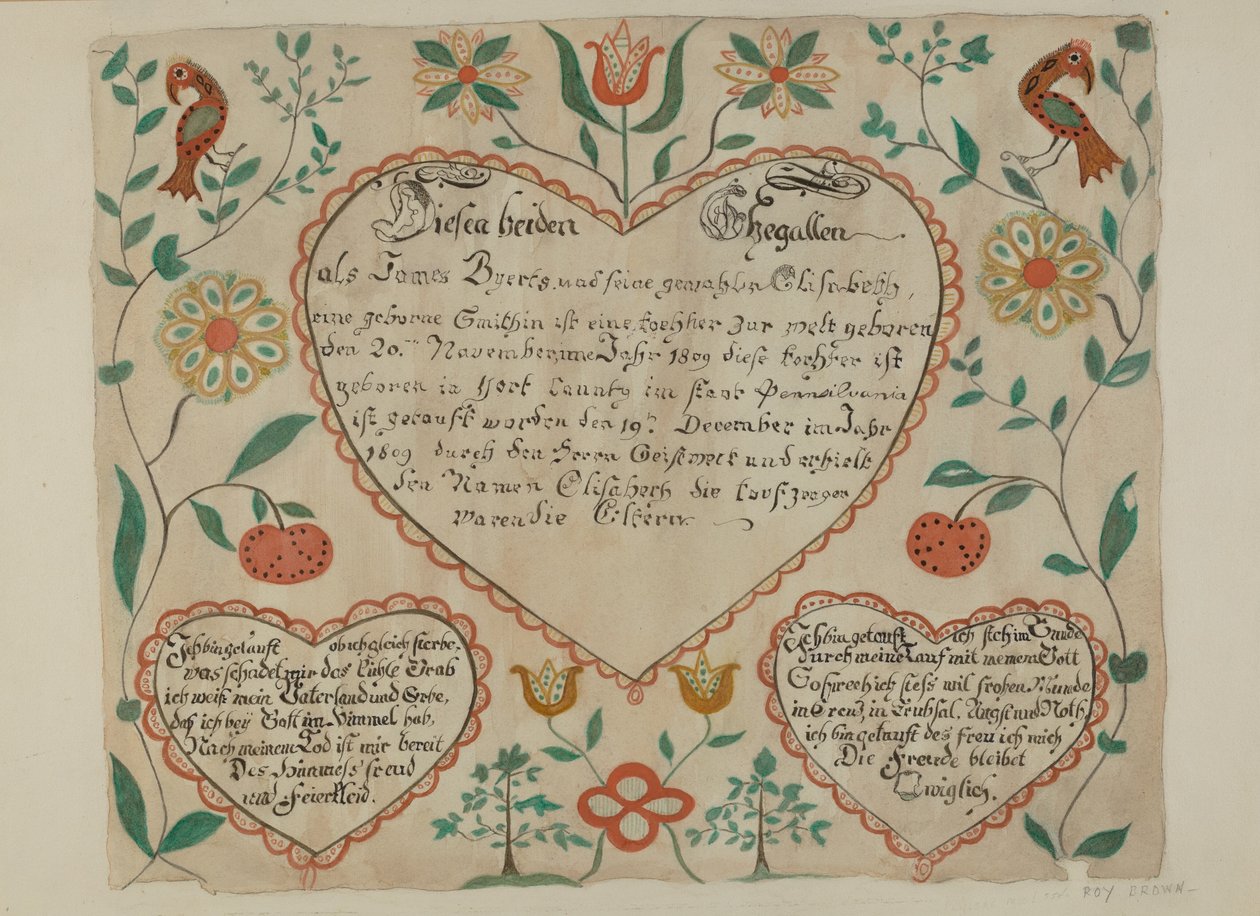 Diesen beiden Ehegallen
als James Byerts und seine gemahlin Elisabeth,
eine geborne Smithin ist eine tochter zur welt geboren
den 20.ten November im Jahr 1809 diese tochter ist
geboren in York Caunty im staat Pennsilvania
ist getauft worden den 19.n December im Jahr
1809 durch den Herrn Geistweit und erhielt
den Namen Elisabeth die taufzeuger
waren die Eltern
Ich bin getauft ob ich gleich sterbe,
was schadet mir das kühle Grab
ich weiß mein Vaterland und Erbe,
daß ich bey Gott im Himmel hab,
Nach meinem Tod ist mir bereit
Des Himmels freud
und Feierkleid.
Ich bin getauft ich steh im Bunde
durch meine Tauf mit meinem Gott
So sprech ich stets mit frohem Munde
in Creuz, in Trübsal, Angst und Noth,
ich bin getauft des freu ich mich
Die Freude bleibet
Ewiglich.
ROY BROWN